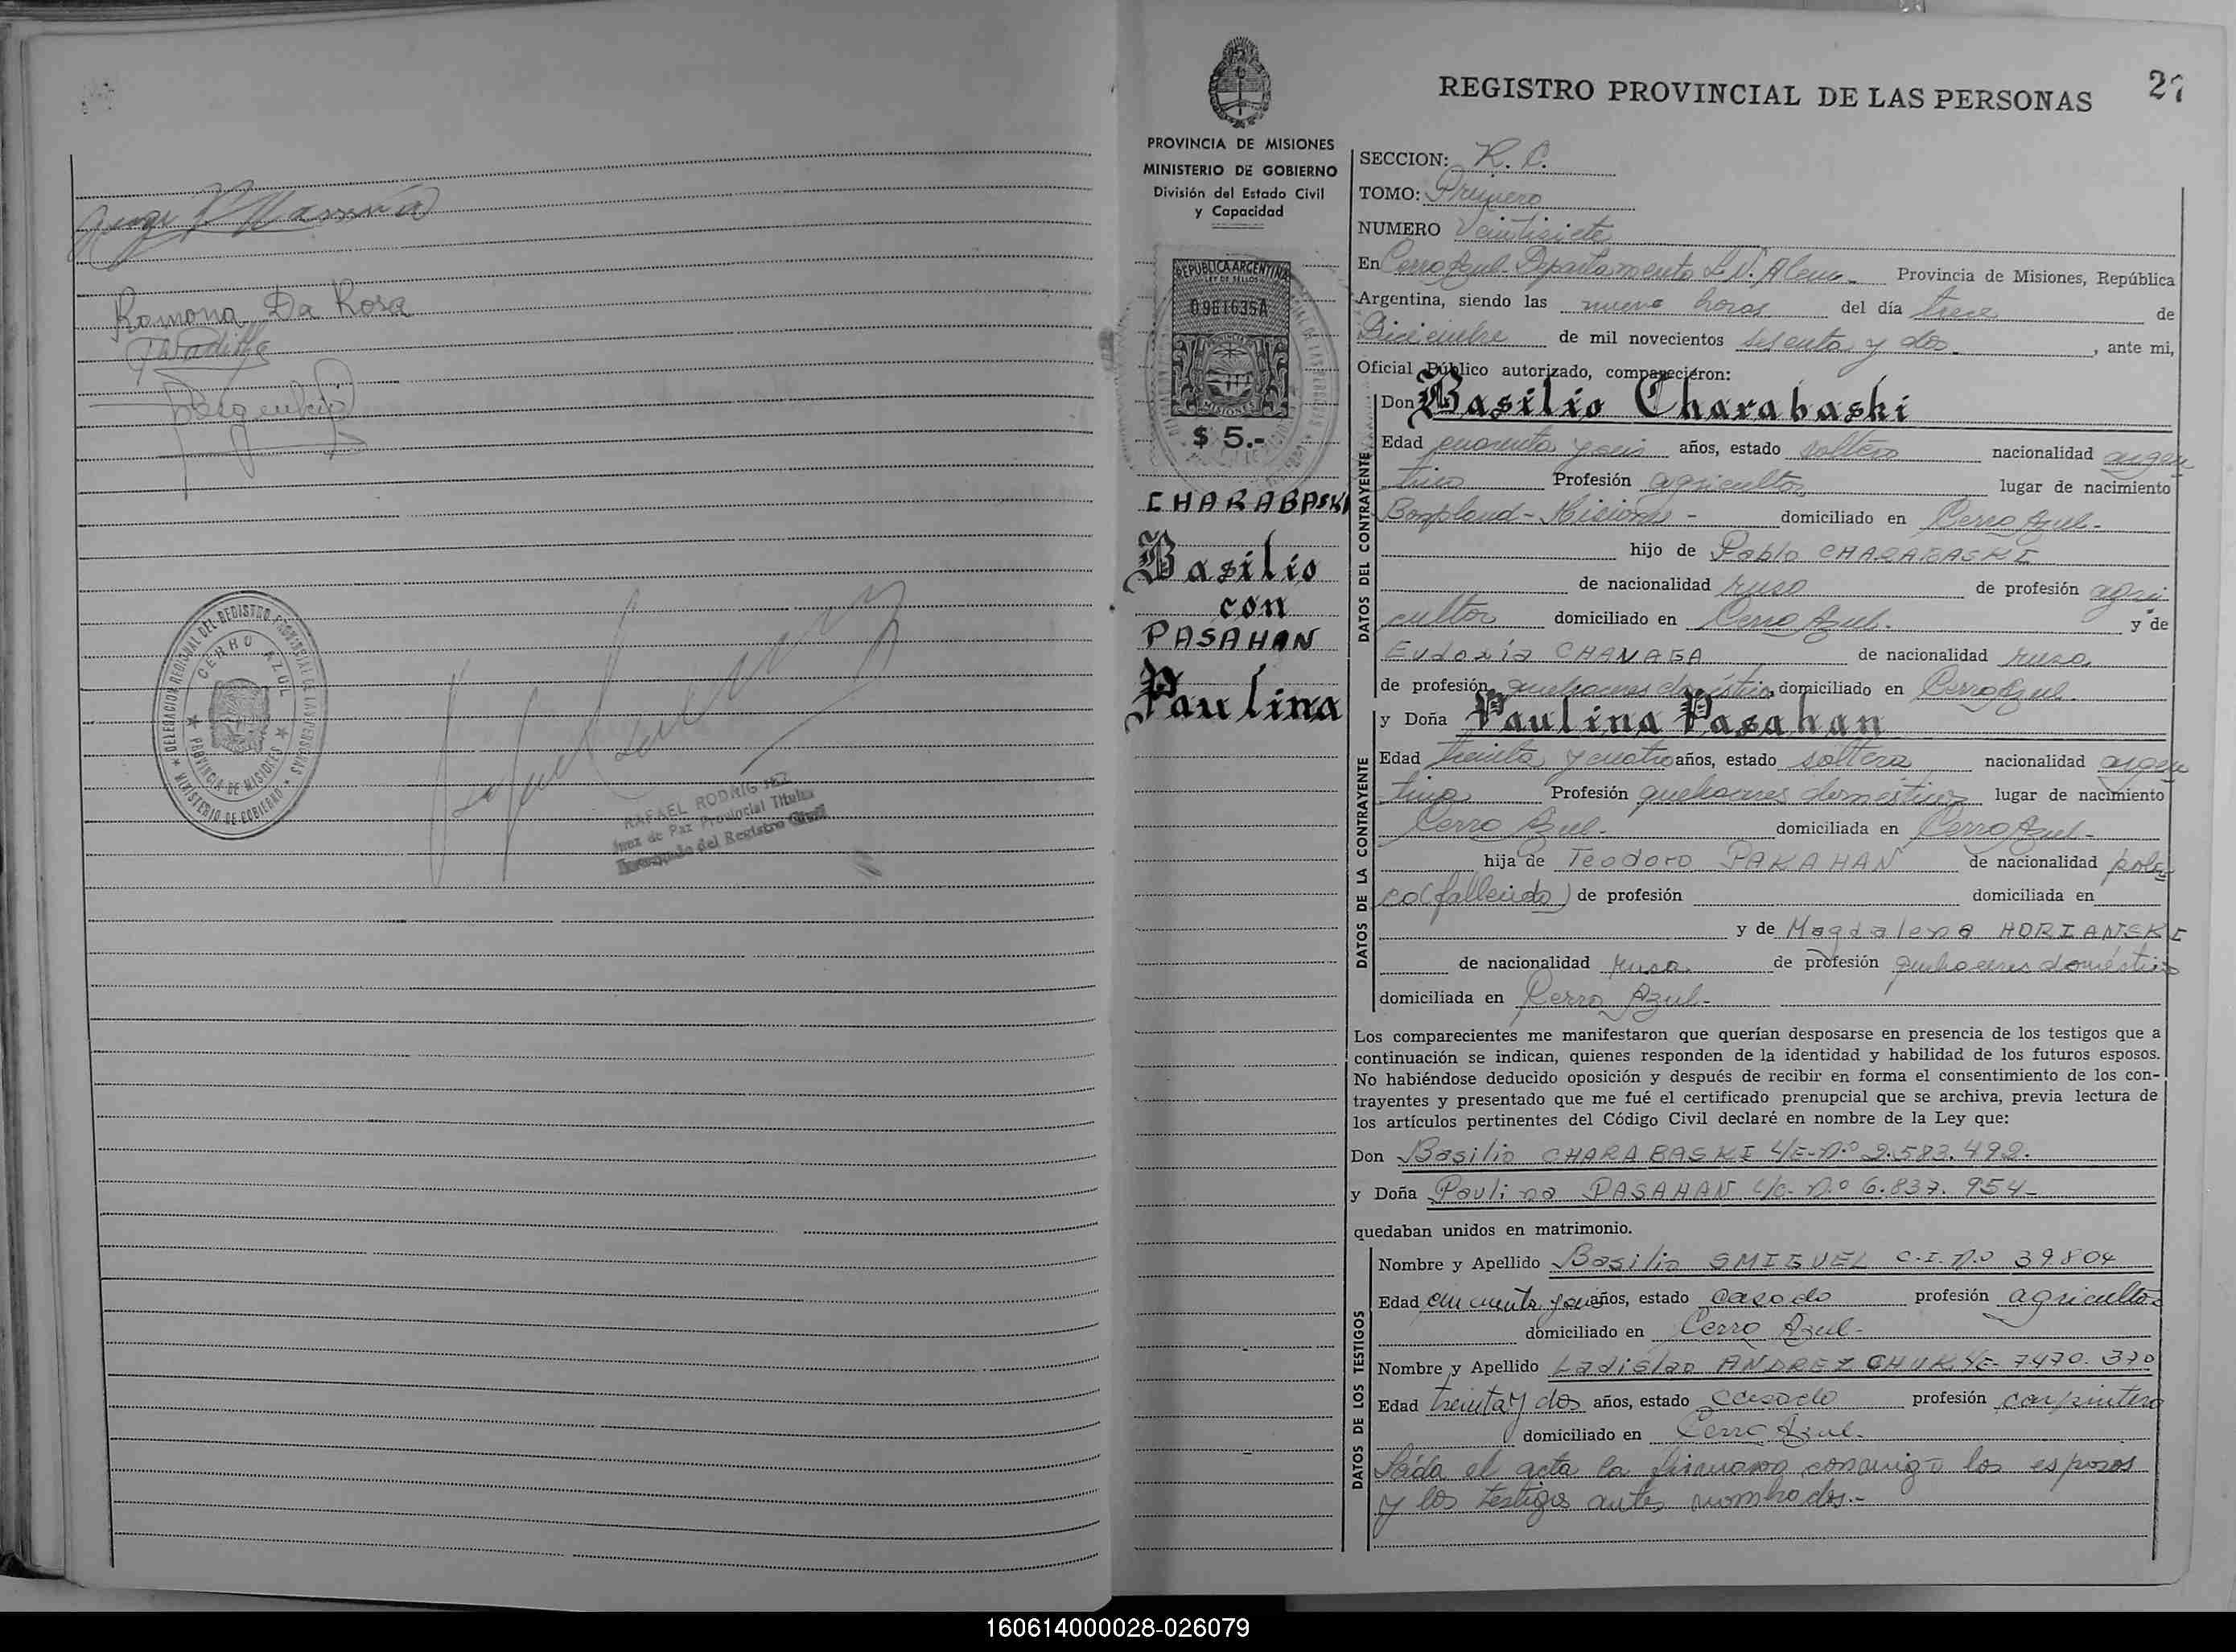 Ramona Da Rosa
DELEGACION REGIONAL DEL REGISTRO PROVINCIAL DE LAS PERSONAS
MINISTERIO DE GOBIERNO
CERRO AZUL
PROVINCIA DE MISIONES
RAFAEL RODRIG EZ
Juez de Paz Provincial Titular
del Registro Civil
PROVINCIA DE MISIONES
MINISTERIO DE GOBIERNO
División del Estado Civil
y Capacidad
REPUBLICA ARGENTINA
LEY DE SELLOS
0961635A
MISIONES
$ 5.-
CHARABASKI
Basilio
con
PASAHAN
Paulina
REGISTRO PROVINCIAL DE LAS PERSONAS
27
SECCION: R. C.
TOMO: Primero
NUMERO Veintisiete
En Cerro Azul - Departamento L. N. Alem - Provincia de Misiones, República
Argentina, siendo las nueve horas del día trece de
Diciembre de mil novecientos sesenta y dos , ante mi,
Oficial Público autorizado, comparecieron:
DATOS DEL CONTRAYENTE
Don Basilio Charabaski
Edad cuarenta y seis años, estado soltero nacionalidad argen
tino Profesión agricultor lugar de nacimiento
Bompland - Misiones - domiciliado en Cerro Azul -
hijo de Pablo CHARABASKI
de nacionalidad ruso de profesión agri
cultor domiciliado en Cerro Azul. y de
Eudoxia CHANAGA de nacionalidad rusa
de profesión quehaceres domésticos domiciliado en Cerro Azul.
DATOS DE LA CONTRAYENTE
y Doña Paulina Pasahan
Edad treinta y cuatro años, estado soltera nacionalidad argen
tina Profesión quehaceres domésticos lugar de nacimiento
Cerro Azul. domiciliada en Cerro Azul -
hija de Teodoro PAKAHAN de nacionalidad pola
co (fallecido) de profesión domiciliada en
y de Magdalena HORIANSKI
de nacionalidad rusa de profesión quehaceres domésticos
domiciliada en Cerro Azul -
Los comparecientes me manifestaron que querían desposarse en presencia de los testigos que a
continuación se indican, quienes responden de la identidad y habilidad de los futuros esposos.
No habiéndose deducido oposición y después de recibir en forma el consentimiento de los con-
trayentes y presentado que me fué el certificado prenupcial que se archiva, previa lectura de
los artículos pertinentes del Código Civil declaré en nombre de la Ley que:
Don Basilio CHARABASKI L/E-N.º 2.583.492.
y Doña Paulina PASAHAN L/C- N.º 6.837.954-
quedaban unidos en matrimonio.
DATOS DE LOS TESTIGOS
Nombre y Apellido Basilio SMIGUEL C.I. N.º 39804
Edad cincuenta y años, estado casado profesión agricultor
domiciliado en Cerro Azul -
Nombre y Apellido Ladislao ANDREZCHUK L/E- 7470.370
Edad treinta y dos años, estado casado profesión carpintero
domiciliado en Cerro Azul.
Leída el acta la firmaron conmigo los esposos
y los testigos antes nombrados.-
160614000028-026079